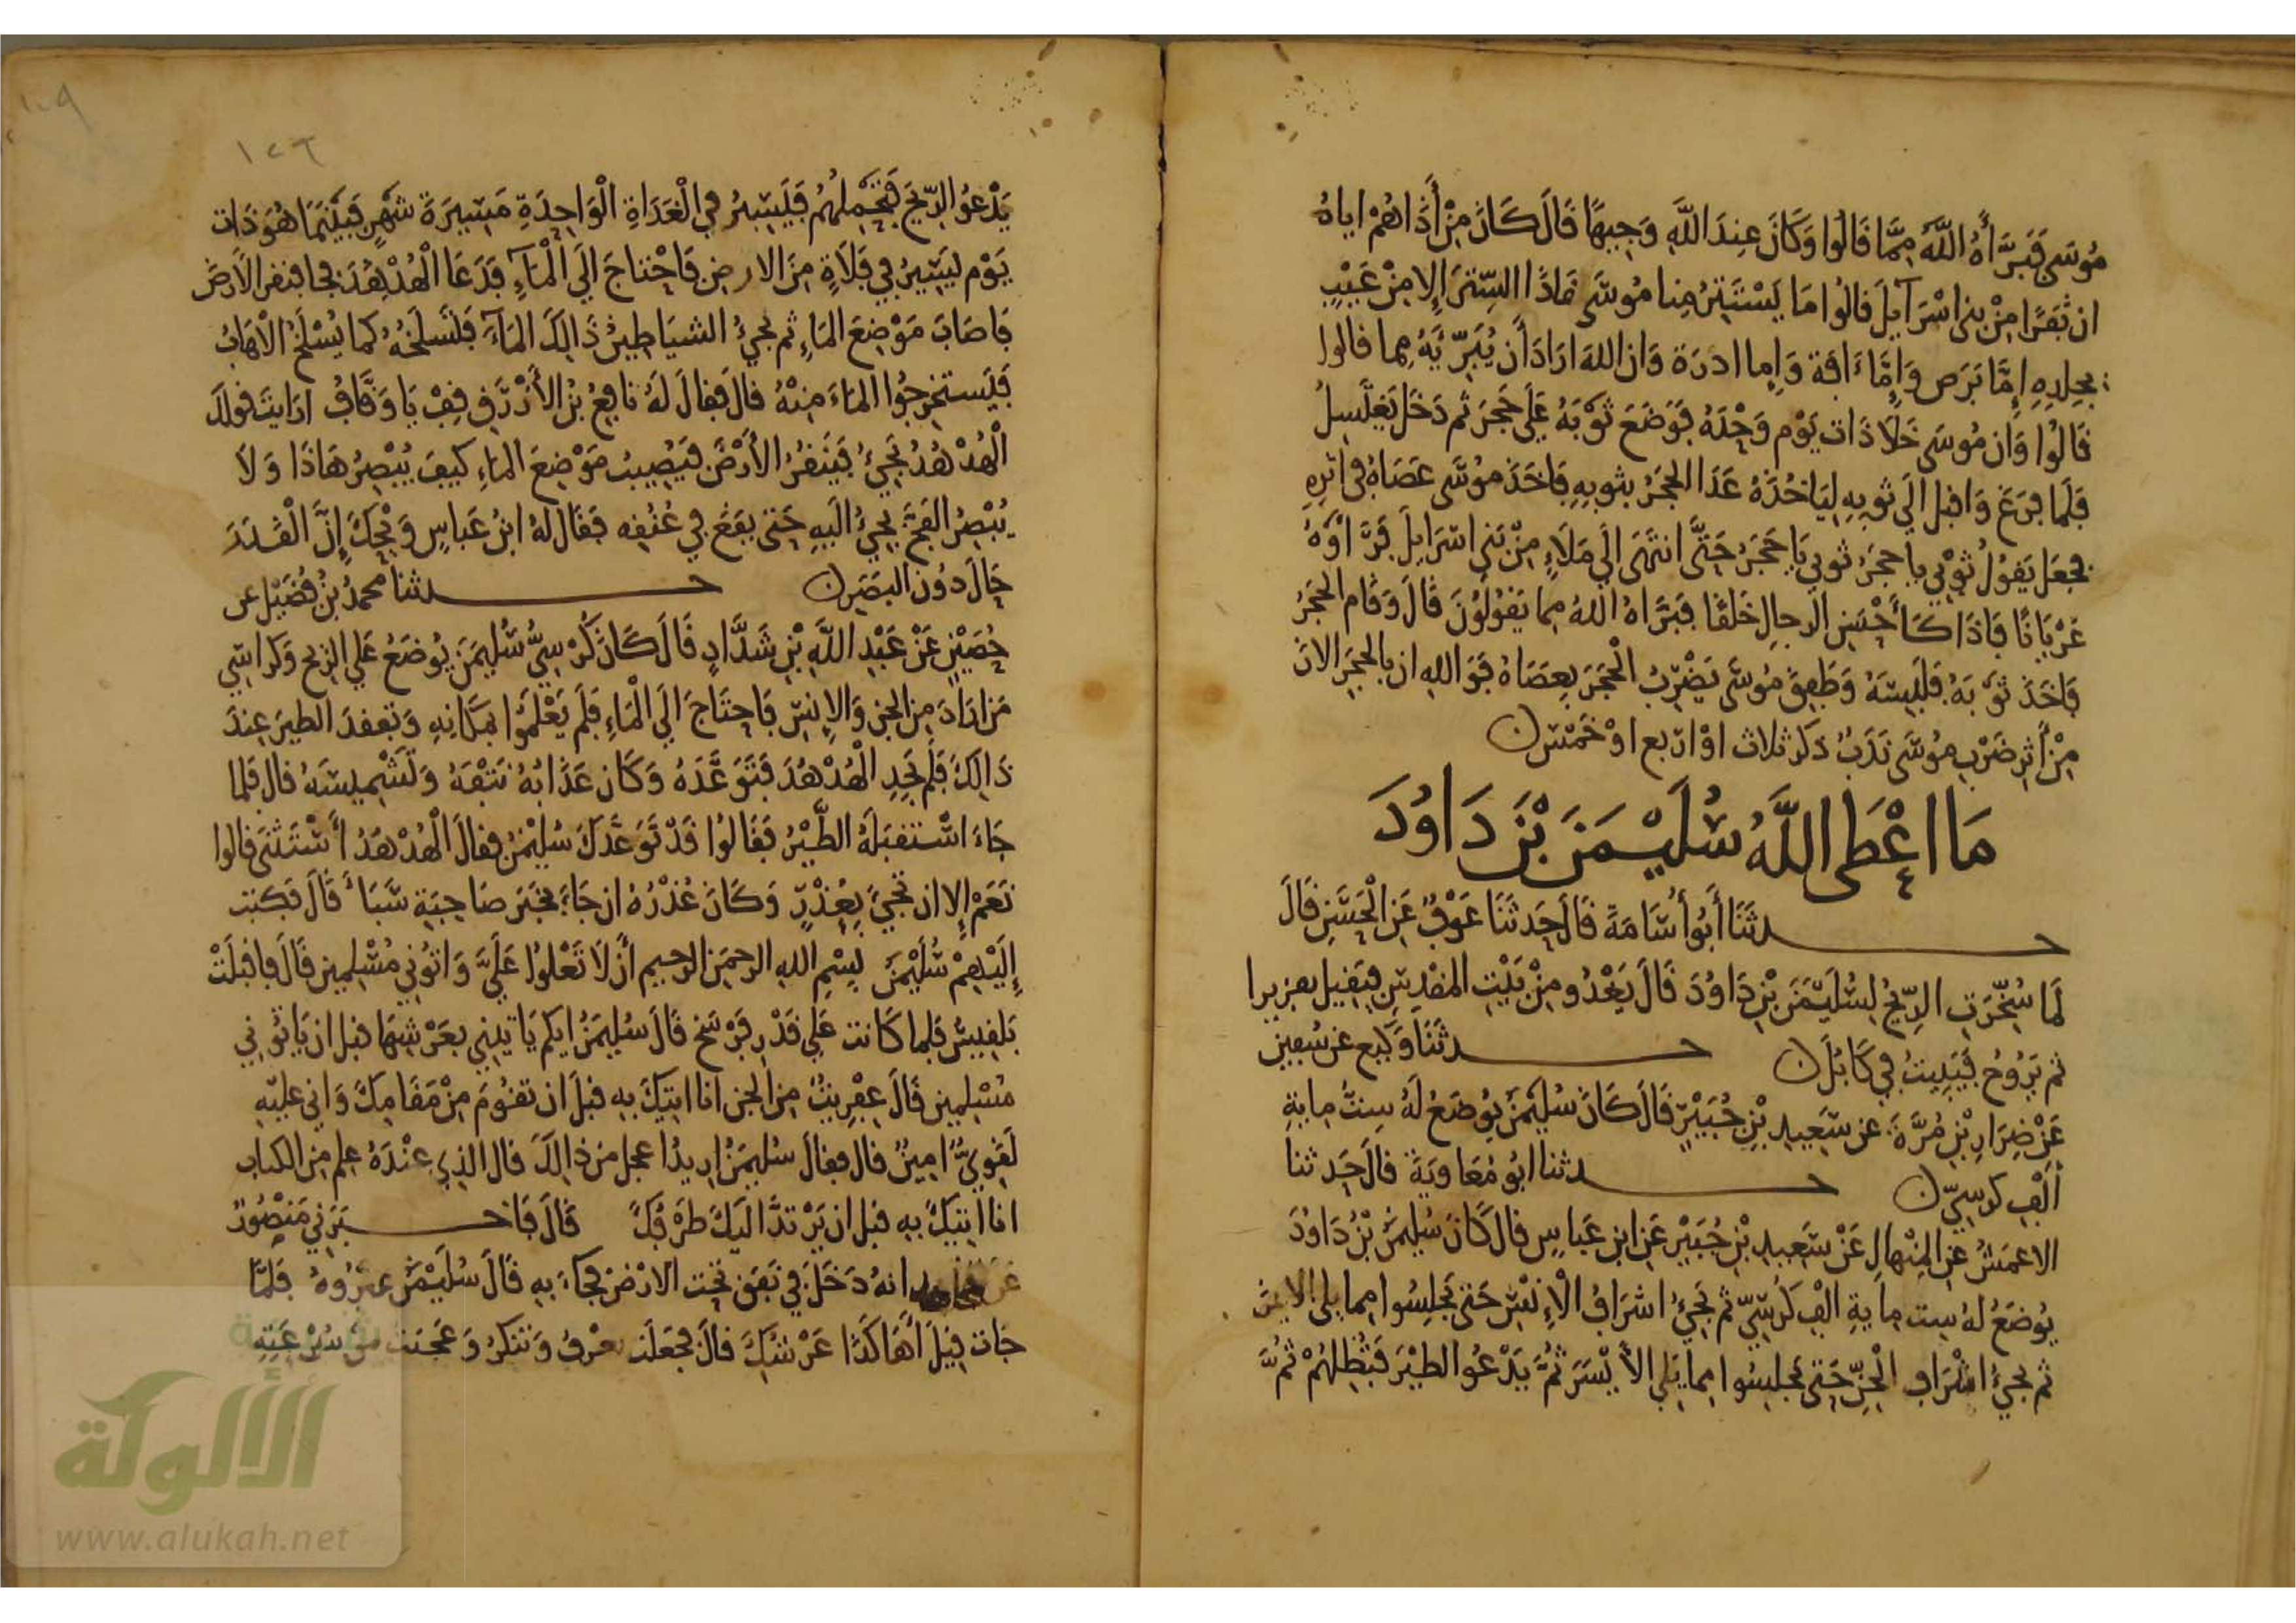 مُوسَى فَبَرَّأَهُ اللَّهُ مِمَّا قَالُوا وَكَانَ عِندَ اللَّهِ وَجِيهًا قَالَ كَانَ مِنْ أَذَاهُمْ اياهُ
ان نَفَرًا مِنْ بني اسْرَآيلَ قالُوا مَا يَسْتَتِرُ مِنا مُوسَى هَاذَا السِّتْرَ إِلا مِنْ عَيْبٍ
بجِلدِهِ إِمَّا بَرَص وَإِمَّا ءَافَة وَإِما ادرَة وَان اللهَ ارَادَ أَن يُبَرِّيَهُ مما قالوا
قَالُوا وَان مُوسَى خَلَا ذَات يَوْم وَحْدَهُ فوَضَعَ ثَوْبَهُ عَلَى حَجَر ثم دَخَلَ يَغتَسِلُ
فَلَما فرَغَ وَاقبل الَى ثوبِهِ لِيَاخُذَهُ عَدَا الحَجَرُ بثوبِهِ فَاخَذَ مُوسَى عَصَاهُ في اثرِهِ
فجَعَل يَقُولُ ثوْبي يا حجَرُ ثوبي يَا حَجَرُ حَتَّى انتَهَى الَى مَلَاءٍ مِنْ بَنى اسْرَايلَ فَرَءاوْهُ
عُرْيَانًا فَاذَا كَأَحْسَنِ الرجالِ خَلقًا فبَرَّاهُ اللهُ مما يَقُولُونَ قَالَ وَقَام الحَجَرُ
فَاخَذَ ثَوْبَهُ فلَبِسَهُ وَطَفِقَ مُوسَى يَضْرِبُ الحَجَرَ بِعَصَاهُ فوَاللهِ ان بالحجَر الانَ
مِنْ أَثرِ ضَرْبِ مُوسَى نَدَبٌ ذكر ثلاث اوْ اربع اوْ خَمْسن
مَا اعْطَى اللَّهُ سُلَيْمَنَ بْنَ دَاوُدَ
حدثَنَا أَبُو أُسَامَةَ قَالَ حَدثَنَا عَوْفٌ عَنِ الْحَسَنِ قَالَ
لَمَا سُخِّرَتِ الرِّيحُ لِسُلَيْمَنَ بْنِ دَاوُدَ قَالَ يَغْدُو مِنْ بَيْتِ المَقدِسِ فيَقِيل بقريرا
ثم يَرُوحُ فَيَبِيتُ في كَابُلَن حدثَنَا وَكِيع عن سُفين
عَنْ ضِرَارِ بْنِ مُرَّةَ عن سَعِيدِ بْنِ جُبَيْرٍ قَالَ كَانَ سُلَيْمَنُ يوُضَعُ لَهُ سِتُّ مِايَةِ
أَلْفِ كرسِيّن حدثنا ابُو مُعَاوِيَةَ قالَ حَدثنا
الاعمَشُ عنِ المِنْهالِ عَنْ سَعِيدِ بْنِ جُبَيْرٍ عَنِ ابنِ عَباسٍ قال كَانَ سُلَيْمَنُ بْنُ دَاوُدَ
يوُضَعُ لهُ سِت مِايَةِ الفِ كرُسِيّ ثم تَجيُ اشرَافُ الْإِنْسِ حَتى يَجلِسُوا مما يلى الايمَنَ
ثم يجيُ اشْرَاف الْجِنِّ حَتى يجلِسُوا مما يَلى الأَيْسَرَ ثمَّ يَدْعُو الطيْرَ فَتُظِلهُمْ ثمَّ
١٠٩
١٢٦
يَدْعُو الرِّيحَ فَتَحْمِلُهُمْ فَيَسِيرُ في الْغَدَاةِ الْوَاحِدَةِ مَسِيرَةَ شَهْرٍ فَبَيْنَمَا هُوَ ذَات
يَوْم يَسِيرُ في فَلَاةٍ مِنَ الارضِ فَاحْتاجَ الَى الْمَآءِ فَدَعَا الْهُدْهُدَ فجا فنقر الأَرْضَ
فَاصَابَ مَوْضِعَ المَاءِ ثم تجيُ الشيَاطِينُ ذَالِكَ المَآءَ فَتَسْلَخُهُ كما يُسْلَخُ الْاهَابُ
فَيَستخرِجُوا المَاءَ مِنْهُ قال فقالَ لَهُ نَافِعُ بْنُ الأَزْرَقِ قِفْ يَا وَقَّافُ ارَايتَ قولَكَ
الْهُدْهُدُ تجيُ فيَنقرُ الأَرْضَ فيُصِيبُ مَوْضِعَ المَاءِ كيفَ يُبْصِرُ هَاذَا وَلَا
يُبْصِرُ الفَخَّ يجيُ الَيهِ حَتى يقَعَ في عُنُقِه فقَالَ لهُ ابنُ عَباسٍ وَيْحَكَ إِنَّ الْقَدَرَ
حَالَ دوُن البَصَرِن حدثنا محمدُ بْنُ فُضَيْلٍ عن
حُصَيْنٍ عَنْ عَبْدِ اللَّهِ بْنِ شَدَّادٍ قَالَ كَانَ كُرْسِيُّ سُلَيمَنَ يُوضَعُ عَلى الرِيح وَكراسِي
مَن ارَادَ مِن الجن وَالِإنسِ فَاحتَاجَ الَى الْمَاءِ فلَم يَعْلَمُوا بمَكَانِهِ وَتفقدَ الطيرَ عِندَ
ذَالِكَ فلَم يَجِدِ الْهُدْهُدَ فَتَوَعَّدَهُ وَكَان عَذَابُهُ نَتْفَهُ وَتَشْمِيسَهُ قالَ فلَما
جَاءَ اسْتَقبَلَهُ الطَّيْرُ فقَالوُا قَدْ تَوَعَّدَكَ سُلَيْمنُ فقالَ الْهُدْهُدُ أَسْتَثنَى قالوا
نَعَمْ إِلا ان تَجيَ بِعُذْرٍ وَكَانَ عُذْرُهُ ان جَاءَ بخَبَر صَاحِبَةِ سَبَأ قَالَ فَكتب
إِلَيْهِمْ سُلَيْمَنُ بِسْمِ اللهِ الرحمَنِ الرحيم أَن لَا تَعْلوُا عَلَيَّ وَاتوُني مُسْلِمِين قَالَ فاقبلَتْ
بَلقِيسُ فلما كَانت عَلى قَدْرِ فَرْسَخ قَالَ سُلَيمَنُ ايكم يَاتِينِي بعَرْشِهَا قبل ان يَاتوُني
مُسْلِمِين قَالَ عِفْرِيتٌ مِن الجن انا اتِيكَ بِه قبلَ ان تقوُمَ مِنْ مَقَامِكَ وَاني عليْهِ
لَقَوِيٌّ امِينٌ قال فقالَ سُليمَنُ اريدُ اعجل مِن ذالِكَ قال الذِي عِنْدَهُ عِلم مِن الكتاب
انا اتِيكَ بِه قبل ان يَرْتدَّ الَيكَ طرْفُكَ قَالَ فَاخبَرَني مَنصُورٌ
عَن مجاهد انهُ دَخَلَ في نَفَق تَحْت الارْضِ فجَاءَ بِه قَالَ سُلَيْمَنُ غيِّرُوهُ فلَمَّا
جَات قِيلَ أَهَاكَذَا عَرْشُكِ قالَ فجَعَلَت تعْرفُ وَتنكرُ وَعَجَبَت مِن سُرْعَتِهِ
الألوكة
www.alukah.net